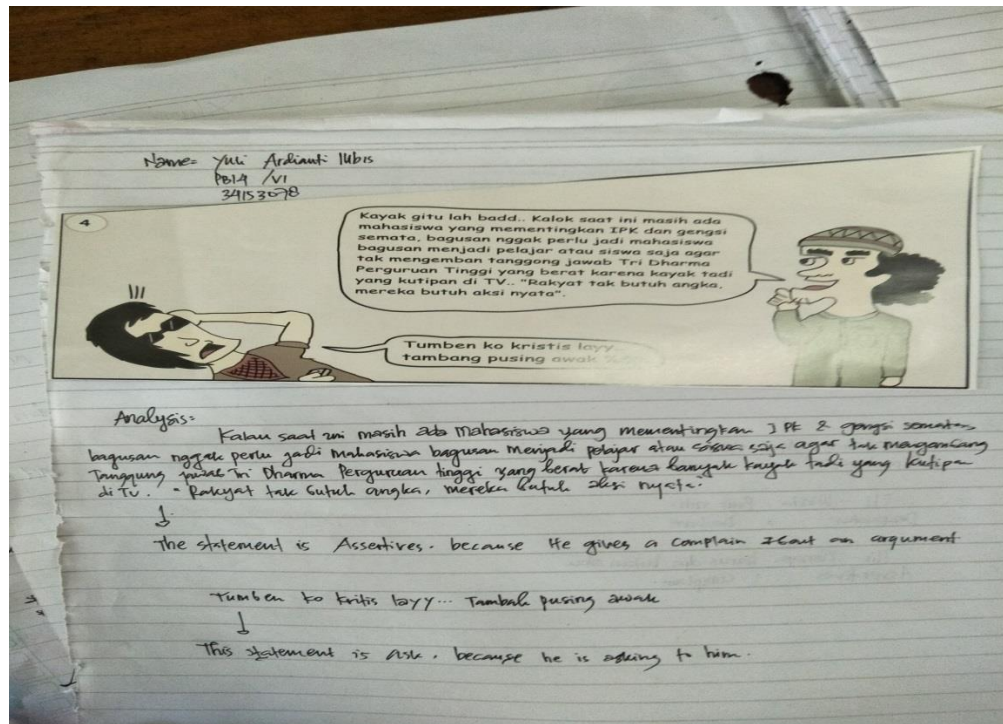 Name= Yuli Ardianti lubis
PBI-4 /VI
34153078
4
Kayak gitu lah badd.. Kalok saat ini masih ada
mahasiswa yang mementingkan IPK dan gengsi
semata, bagusan nggak perlu jadi mahasiswa
bagusan menjadi pelajar atau siswa saja agar
tak mengemban tanggong jawab Tri Dharma
Perguruan Tinggi yang berat karena kayak tadi
yang kutipan di TV.. "Rakyat tak butuh angka,
mereka butuh aksi nyata".
Tumben ko kristis layy
tambang pusing awak
Analysis=
Kalau saat ini masih ada mahasiswa yang mementingkan IPK & gengsi semata
bagusan nggak perlu jadi mahasiswa bagusan menjadi pelajar atau siswa saja agar tak
Tanggung jawab Tri Dharma Perguruan tinggi yang berat karena banyak kayak tadi yang kutipan
di TV. "Rakyat tak butuh angka, mereka butuh aksi nyata."
The statement is Assertives. because He gives a complain about an argument
Tumben ko kritis layy... Tambah pusing awak
This statement is ask. because he is asking to him.